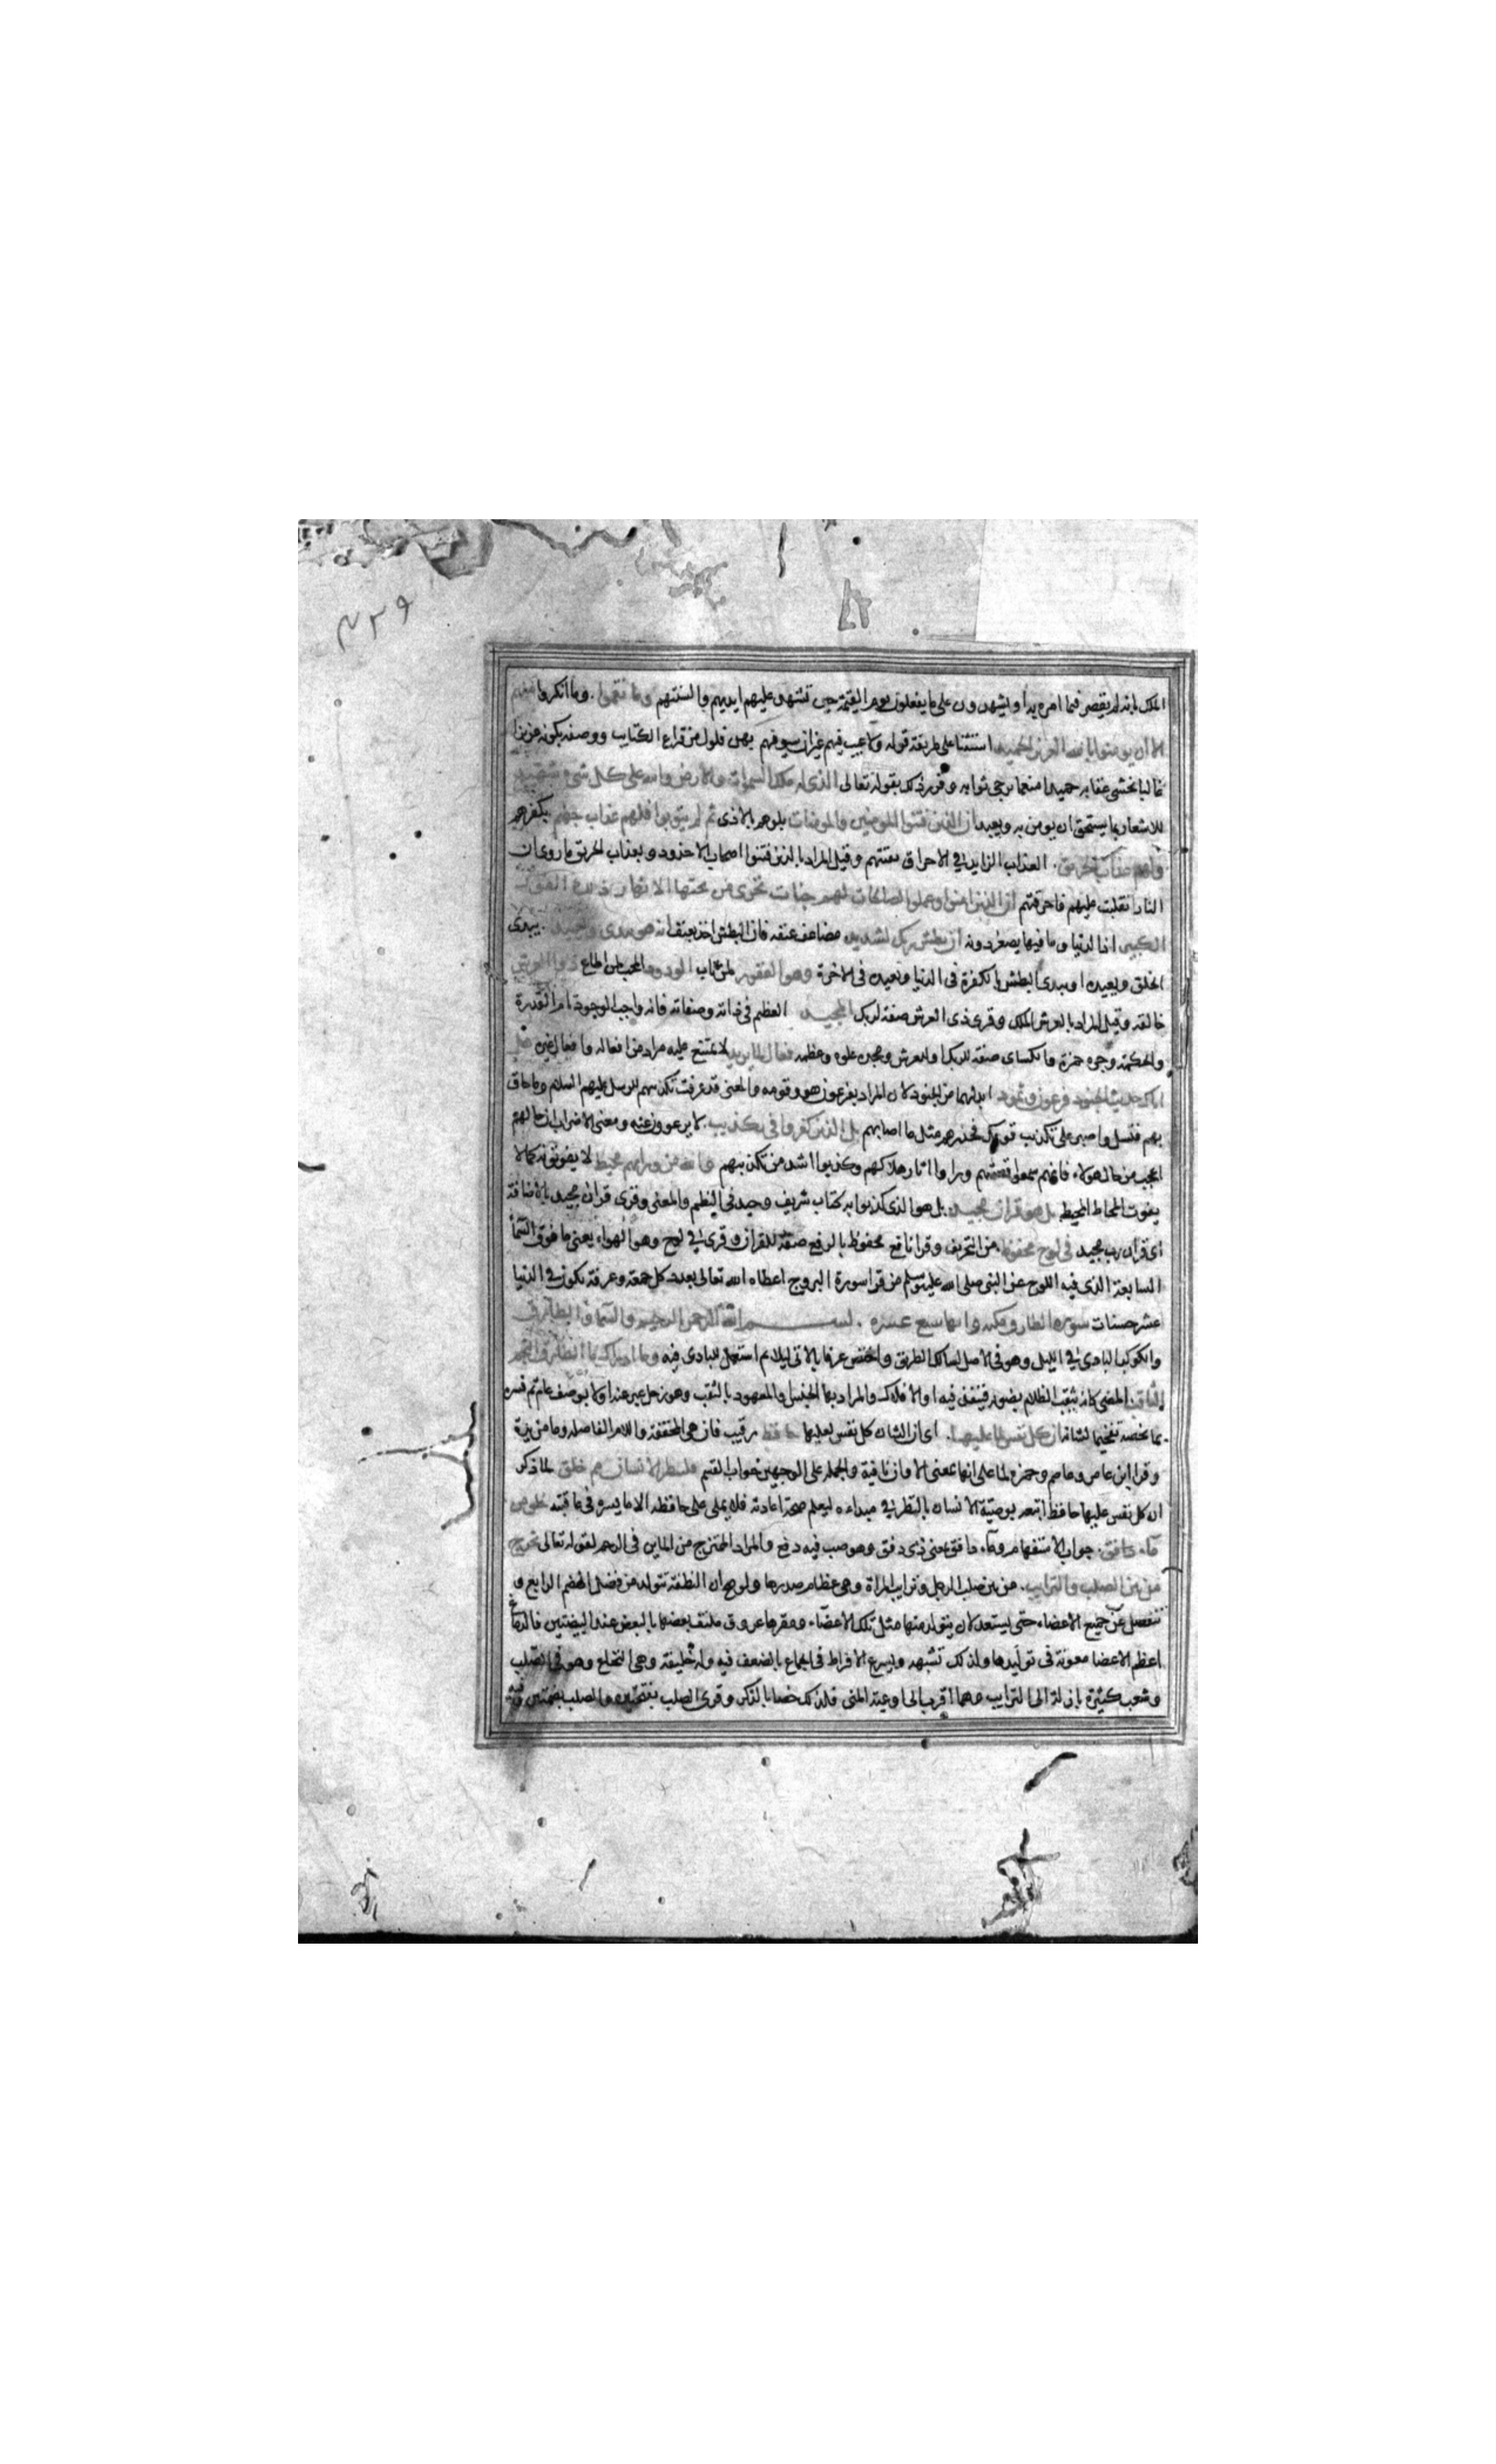 ٤٣٩
الملك بانه لم يقصر فيما امر به او يشهدون على ما يفعلون يوم القيمة حين تشهد عليهم ايديهم والسنتهم وما نقموا . وما انكروا منهم
الا ان يومنوا بالله العزيز الحميد استثنا على طريقة قوله ولا عيب فيهم غير ان سيوفهم بهن فلول من قراع الكتايب ووصفه بكونه عزيزا
غالبا يخشى عقابه حميدا منعما يرجى ثوابه وقرر ذلك بقوله تعالى الذى له ملك السموات والارض والله على كل شى شهيد
للاشعار بما يستحق ان يومن به ويعبد ان الذين فتنوا المومنين والمومنات بلوهم بالاذى ثم لم يتوبوا فلهم عذاب جهنم بكفرهم
ولهم عذاب الحريق . العذاب الزايد في الاحراق بفتنتهم وقيل المراد بالذين فتنوا اصحاب الاخدود وبعذاب الحريق ما روى ان
النار انقلبت عليهم فاحرقتهم ان الذين امنوا وعملوا الصالحات لهم جنات تجرى من تحتها الانهار ذلك الفوز
الكبير اذ الدنيا وما فيها يصغر دونه ان بطش ربك لشديد مضاعف عنفه فان البطش اخذ بعنف انه هو يبدى ويعيد . يبدى
الخلق ويعيده او يبدى البطش بالكفرة فى الدنيا ويعيده فى الاخرة وهو الغفور لمن تاب الودود المحب لمن اطاع ذو العرش
خالقه وقيل المراد بالعرش الملك وقرى ذى العرش صفة لربك المجيد العظيم فى ذاته وصفاته فانه واجب الوجود تام القدرة
والحكمة وجره حمزة والكساى صفة لربك او للعرش ومجده علوه وعظمه فعال لما يريد لا يمتنع عليه مراد من افعاله وافعال غيره هل
اتاك حديث الجنود فرعون وثمود ابدلهما من الجنود لان المراد بفرعون هو وقومه والمعنى قد عرفت تكذيبهم للرسل عليهم السلام وما حاق
بهم فتسل واصبر على تكذيب قومك فحذرهم مثل ما اصابهم بل الذين كفروا فى تكذيب . لا يرعوون عنه ومعنى الاضراب ان حالهم
اعجب من حال هولاء فانهم سمعوا قصتهم وراوا اثار هلاكهم وكذبوا اشد من تكذيبهم والله من ورايهم محيط لا يفوتونه كما لا
يفوت المحاط المحيط بل هو قران مجيد . بل هو الذى كذبوا به كتاب شريف وحيد فى النظم والمعنى وقرى قران مجيد بالاضافة
اى قران رب مجيد فى لوح محفوظ . من التحريف وقرا نافع محفوظ بالرفع صفة للقران وقرى في لوح وهو الهواء يعنى ما فوق السماء
السابعة الذى فيه اللوح عن النبى صلى الله عليه وسلم من قرا سورة البروج اعطاه الله تعالى بعدد كل جمعة وعرفة تكون في الدنيا
عشر حسنات سورة الطارق مكية وايها سبع عشرة . بسم الله الرحمن الرحيم والسماء والطارق
والكوكب البادى في الليل وهو فى الاصل لسالك الطريق واختص عرفا بالاتى ليلا ثم استعمل للبادى فيه وما ادراك ما الطارق النجم
الثاقب المضى كانه يثقب الظلام بضوئه فينفذ فيه او الافلاك والمراد بها الجنس والمعهود بالثقب وهو زحل عبر عنه اولا بوصف عام ثم فسره
بما يخصه تفخيما لشانه ان كل نفس لما عليها . اى ان الشان كل نفس لعليها حافظ رقيب فان هى المخففة واللام الفاصله وما مزيدة
وقرا ابن عامر وعاصم وحمزة لما على انها بمعنى الا وان نافية والجملة على الوجهين جواب القسم فلينظر الانسان مم خلق لما ذكر
ان كل نفس عليها حافظ اتبعه بوصية الانسان بالنظر في مبداءه ليعلم صحة اعادته فلا يملى على حافظه الا ما يسره فى عاقبته خلق من
ماء دافق . جواب الاستفهام وماء دافق بمعنى ذى دفق وهو صب فيه دفع والمراد الممتزج من الماين فى الرحم لقوله تعالى يخرج
من بين الصلب والترايب . من بين صلب الرجل وترايب المراة وهى عظام صدرها ولو صح ان النطفة تتولد من فضل الهضم الرابع و
تنفصل عن جميع الاعضاء حتى يستعد لان يتولد منها مثل تلك الاعضاء ومقرها عروق ملتف بعضها بالبعض عند البيضتين فالدماغ
اعظم الاعضا معونة فى توليدها ولذلك تشبهه ويسرع الافراط فى الجماع بالضعف فيه وله خليفة وهى النخاع وهو فى الصلب
وشعب كثيرة نازلة الى الترايب وهما اقرب الى اوعية المنى فلذلك خصا بالذكر وقرى الصلب بفتحتين والصلب بضمتين وفيه